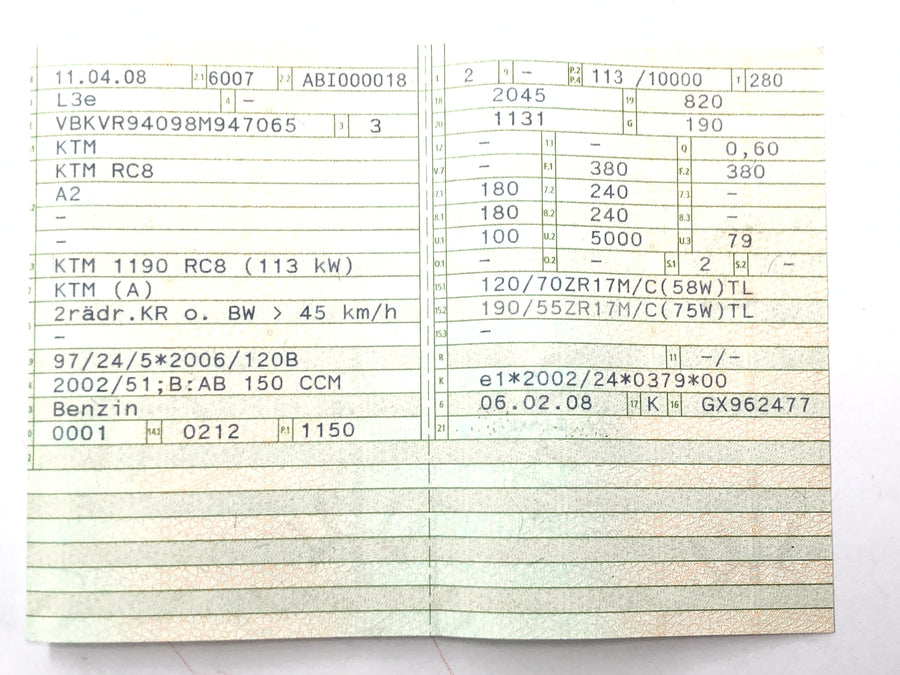 11.04.08 2.1 6007 2.2 ABI000018
L3e 4 –
VBKVR94098M947065 3 3
KTM
KTM RC8
A2
–
–
KTM 1190 RC8 (113 kW)
KTM (A)
2rädr.KR o. BW > 45 km/h
–
97/24/5*2006/120B
2002/51;B:AB 150 CCM
Benzin
0001 14.1 0212 P.1 1150
2 9 – P.2 P.4 113 /10000 T 280
18 2045 19 820
20 1131 G 190
12 – 13 – Q 0,60
V.7 – F.1 380 F.2 380
7.1 180 7.2 240 7.3 –
8.1 180 8.2 240 8.3 –
U.1 100 U.2 5000 U.3 79
O.1 – O.2 – S.1 2 S.2 –
15.1 120/70ZR17M/C(58W)TL
15.2 190/55ZR17M/C(75W)TL
15.3 –
R 11 –/–
K e1*2002/24*0379*00
6 06.02.08 17 K 16 GX962477
21